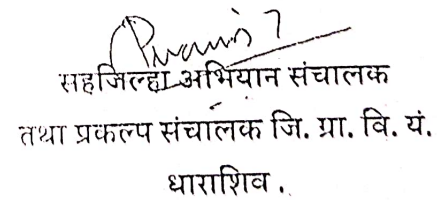 सहजिल्हा अभियान संचालक
तथा प्रकल्प संचालक जि. ग्रा. वि. यं.
धाराशिव .